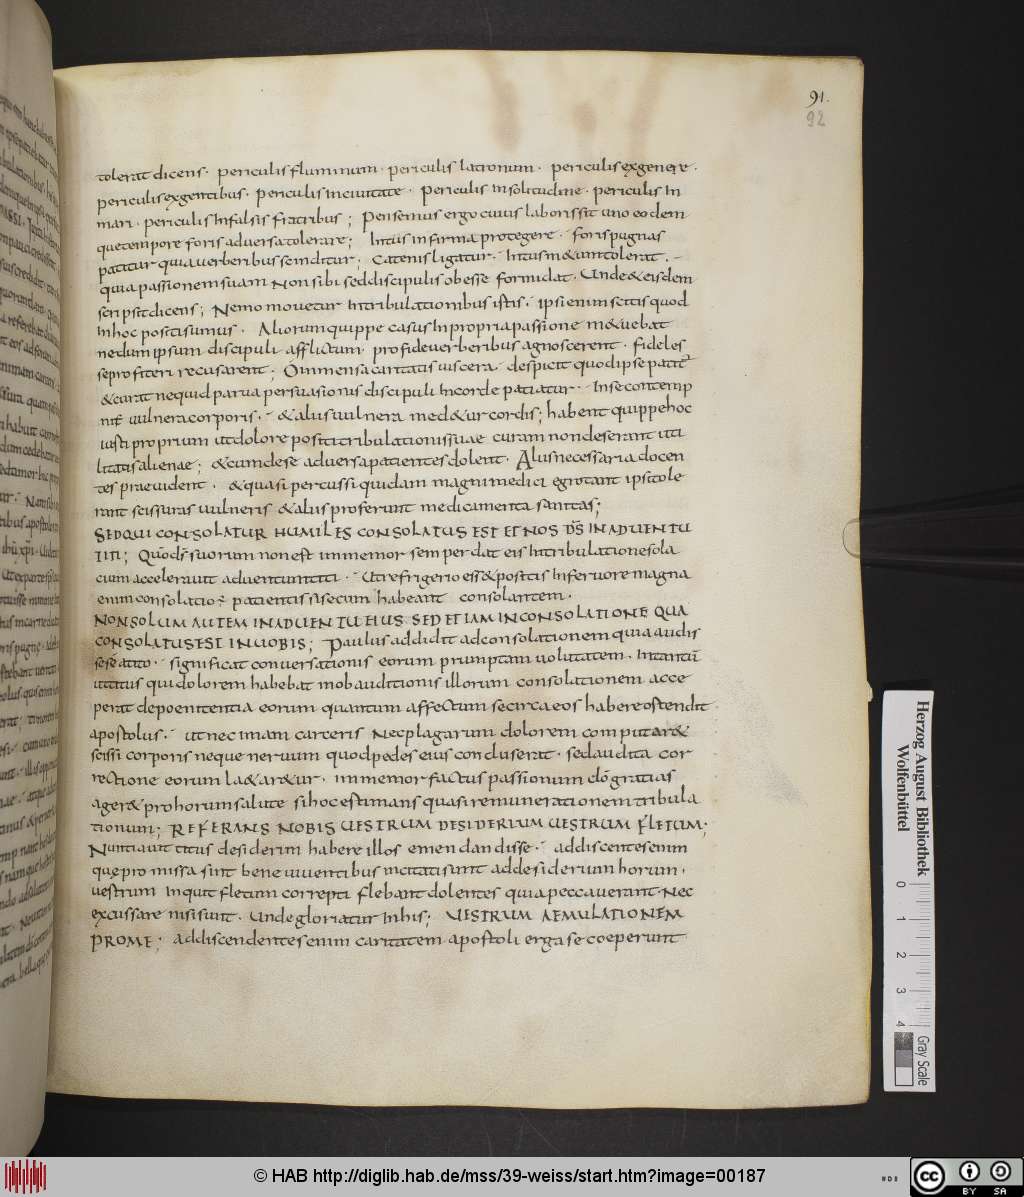 91.
92
tolerat dicens· periculis fluminum· periculis latronum· periculis exgenere·
periculis exgentibus· Periculis incivitate· Periculis Insolitudine· periculis In
mari· periculis Infalsis fratribus; Pensemus ergo cuius laboris sit uno eodem
quetempore foris adversa tolerare; Intus infirma protegere· foris pugnas
patitur quia verberibus scinditur; Catenis ligatur· Intus m&um tolerat·
quia passionem suam Non sibi sed discipulis obesse formidat· Unde & eisdem
scripsit dicens; Nemo moveatur Intribulationibus istis· ipsi enim scitis quod
Inhoc positi sumus· Aliorum quippe casus In propria passione m&uebat
nedum ipsum discipuli afflictum profide verberibus agnoscerent· fideles
se profiteri recusarent; O inmensa caritatis viscera· despicit quod ipse patit
& curat nequid prava persuasionis discipuli Incorde patiatur· Inse contemp
nit vulnera corporis· & aliis vulnera med&ur cordis; habent quippe hoc
iusti proprium ut dolore positi tribulationis suae curam non deserant uti
litatis alienae; & cum dese adversa patientes dolent· Aliis necessaria docen
tes praevident· & quasi percussi quidam magni medici egrotant ipsi tole
rant scissuras vulneris & aliis proferunt medicamenta sanitas;
SED QUI CONSOLATUR HUMILES CONSOLATUS EST ET NOS DS IN ADUENTU
TITI; Quod suorum non est immemor semper dat eis Intribulatione sola
cium acceleravit adventum titi· Ut refrigerio ess& positis Infervore magna
enim consolatio patientis si secum habeant consolantem·
NON SOLUM AUTEM IN ADUENTU EIUS SED ETIAM IN CONSOLATIONE QUA
CONSOLATUS EST IN UOBIS; Paulus addidit ad consolationem quia audis
se se a tito· significat conversationis eorum promptam voluntatem· Intantū
ut titus qui dolorem habebat inob auditionis illorum consolationem acce
perit depoenitentia eorum quantum affectum se circa eos habere ostendit
apostolus· ut nec imam carceris Nec plagarum dolorem comput ar&
scissi corporis neque nervum quod pedes eius concluserat· sed audita cor
rectione eorum la&ar&ur· immemor factus passionum dō gratias
ager& pro horum salute si hoc estimans quasi remunerationem tribula
tionum; REFERANS NOBIS UESTRUM DESIDERIUM UESTRUM FLETUM;
Nuntiavit titus desiderim habere illos emendandisse· addiscentes enim
que promissa sint bene viventibus incitati sunt ad desiderium horum·
vestrum inquit fletum correpti flebant dolentes quia peccaverant Nec
excussare nisi sunt· Unde gloriatur In his; UESTRUM AEMULATIONEM
PRO ME; addiscendentes enim caritatem apostoli erga se coeperunt
Herzog August Bibliothek
Wolfenbüttel
0 1 2 3 4
Gray Scale
© HAB http://diglib.hab.de/mss/39-weiss/start.htm?image=00187
cc BY SA